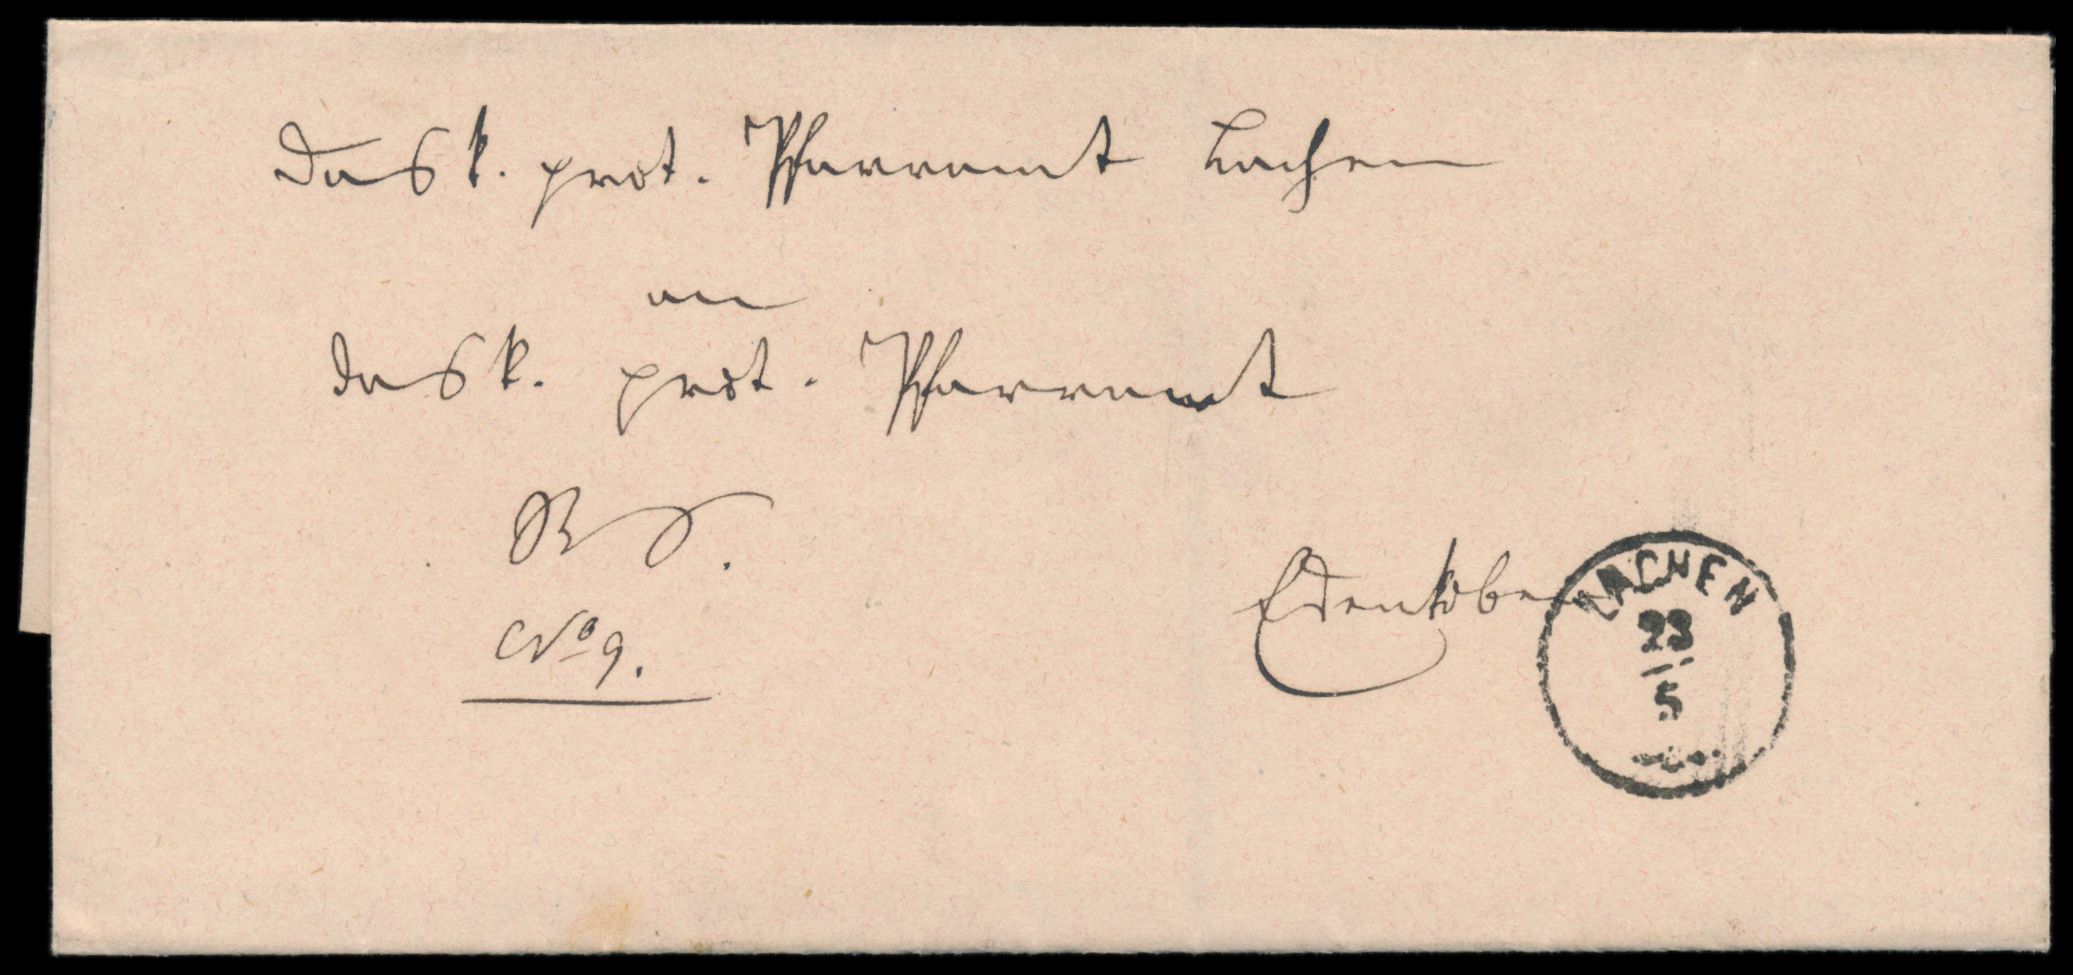 Das k. prot. Pfarramt Lachen
an
das k. prot. Pfarramt
R. S.
No 9.
Edenkoben
LACHEN
23
5